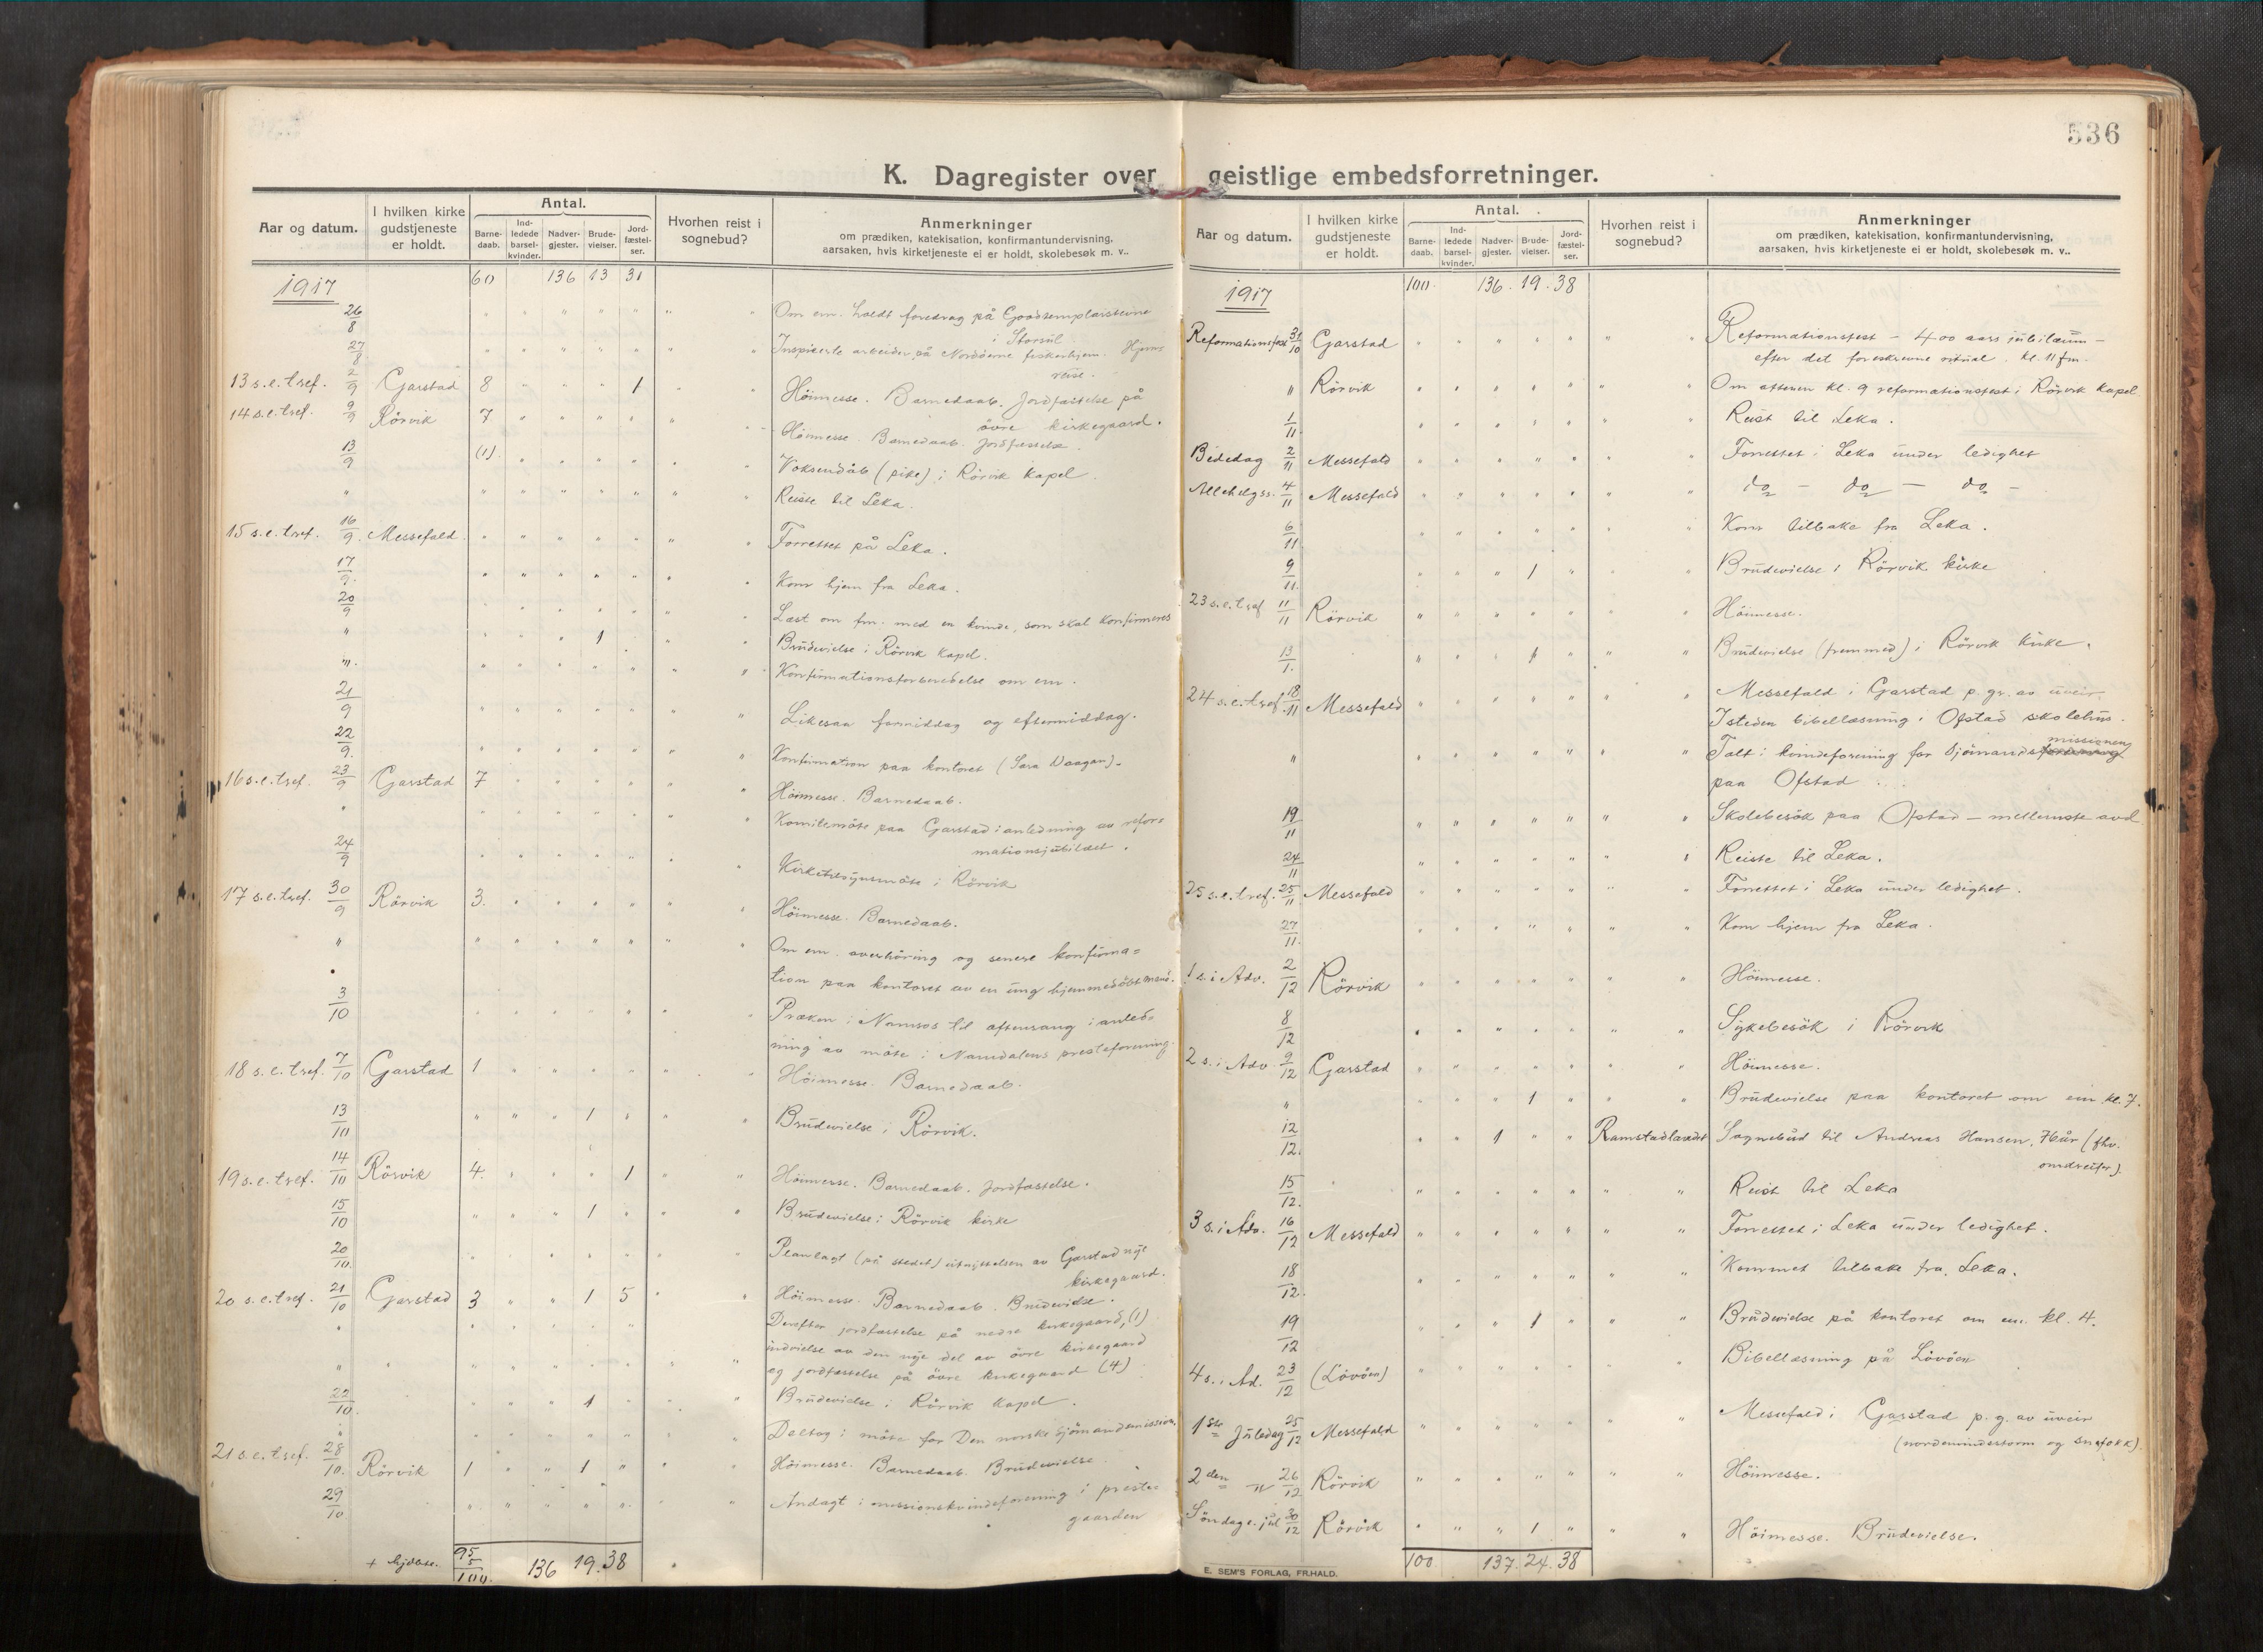 536
K. Dagregister over geistlige embedsforretninger.
Aar og datum. I hvilken kirke gudstjeneste er holdt. Antal. Barne-daab. Ind-ledede barsel-kvinder. Nadver-gjester. Brude-vielser. Jord-fæstel-ser. Hvorhen reist i sognebud? Anmerkninger om prædiken, katekisation, konfirmantundervisning, aarsaken, hvis kirketjeneste ei er holdt, skolebesøk m. v..
1917 60 136 13 31
26/8 Om em. holdt foredrag på Goodtemplarstevne
i Storsül
27/8 Inspicerte arbeider på Nordöerne fiskerhjem. Hjem-
reise.
13 s.e. tref. 2/9 Garstad 8 1 Höimesse. Barnedaab. Jordfæstelse på
övre kirkegaard.
14 s.e. tref. 9/9 Rörvik 7 Höimesse. Barnedaab. Jordfæstelse.
13/9 (1) Voksendåb (pike) i Rörvik kapel.
" Reiste til Leka.
15 s.e. tref. 16/9 Messefald. Forrettet på Leka.
17/9. Kom hjem fra Leka.
20/9 Læst om fm. med en kvinde, som skal konfirmeres
" 1 Brüdevielse i Rörvik kapel.
" Konfirmationsforberedelse om em.
21/9 Likesaa formiddag og eftermiddag.
22/9. Konfirmation paa kontoret (Sara Waagan).
16 s.e. tref. 23/9 Garstad 7 Höimesse. Barnedaab.
" Komitemöte paa Garstad i anledning av refor=
mationsjubilæet.
24/9 Kirketilsynsmöte i Rörvik
17 s.e. tref. 30/9 Rörvik 3. Höimesse. Barnedaab.
" Om em. overhöring og senere konfirma=
tion paa kontoret av en üng hjemmedöbt mand.
3/10 Præken i Namsos til aftensang i anled=
ning av möte i Namdalens presteforening.
18 s.e. tref. 7/10 Garstad 1 Höimesse. Barnedaab.
13/10 1 Brüdevielse i Rörvik.
19 s.e. tref. 14/10 Rörvik 4. 1 Höimesse. Barnedaab. Jordfæstelse.
15/10 1 Brüdevielse i Rörvik kirke
20/10. Planlagt (på stedet) utnyttelsen av Garstad nye
kirkegaard.
20 s.e. tref. 21/10 Garstad 3 1 5 Höimesse. Barnedaab. Brüdevielse.
Derefter jordfæstelse på nedre kirkegaard, (1)
indvielse av den nye del av övre kirkegaard
og jordfæstelse på övre kirkegaard (4)
22/10. 1 Brüdevielse i Rörvik kapel.
" Deltog i möte for Den norske sjömandsmission.
21 s.e. tref. 28/10. Rörvik 1 1 Höimesse. Barnedaab. Brüdevielse.
29/10 Andagt i missionskvindeforening i preste-
gaarden
+ hjdöbte. 95
5
100. 136 19. 38
Aar og datum. I hvilken kirke gudstjeneste er holdt. Antal. Barne-daab. Ind-ledede barsel-kvinder. Nadver-gjester. Brude-vielser. Jord-fæstel-ser. Hvorhen reist i sognebud? Anmerkninger om prædiken, katekisation, konfirmantundervisning, aarsaken, hvis kirketjeneste ei er holdt, skolebesøk m. v..
1917 100. 136. 19. 38
Reformationsfest 31/10 Garstad Reformationsfest – 400 aars jubilæum –
efter det foreskrevne ritual. kl. 11 fm.
" Rörvik Om aftenen kl. 9 reformationsfest i Rörvik kapel.
1/11. Reist til Leka.
Bededag 2/11 Messefald Forrettet i Leka ünder ledighet
Allehelgss. 4/11 Messefald do – do – do –
6/11 Kom tilbake fra Leka.
9/11. 1 Brüdevielse i Rörvik kirke
23 s.e. tref 11/11 Rörvik Höimesse.
13/1. 1 Brüdevielse (fremmed) i Rörvik kirke.
24 s.e. tref 18/11 Messefald Messefald i Garstad p. gr. av üveir.
Isteden bibellæsning i Ofstad skolehüs.
" Talt i kvindeforening for Sjömandsmissionen
paa Ofstad
19/11 Skolebesök paa Ofstad – mellemste avd
24/11 Reiste til Leka.
25 s.e. tref. 25/11 Messefald Forrettet i Leka ünder ledighet.
27/11. Kom hjem fra Leka.
1 s. i Adv. 2/12 Rörvik Höimesse.
8/12 Sykebesök i Rörvik
2 s. i Adv 9/12 Garstad Höimesse.
" 1 Brüdevielse paa kontoret om em kl. 7.
12/12. 1 Ramstadlandet Sognebüd til Andreas Hansen, 76 år (fhv.
omdreifer).
15/12. Reist til Leka
3 s. i Adv. 16/12 Messefald Forrettet i Leka ünder ledighet.
18/12. Kommet tilbake fra Leka.
19/12 1 Brüdevielse på kontoret om em. kl. 4.
4 s. i Ad. 23/12 (Lövöen) Bibellæsning på Lövöen
1ste Jüledag 25/12 Messefald Messefald i Garstad p. g. av üveir
(nordenvindsstorm og snefokk).
2den " 26/12 Rörvik Höimesse.
Söndag e. jül 30/12 Rörvik 1 Höimesse. Brüdevielse.
100 137. 24. 38
E. SEM'S FORLAG, FR.HALD.